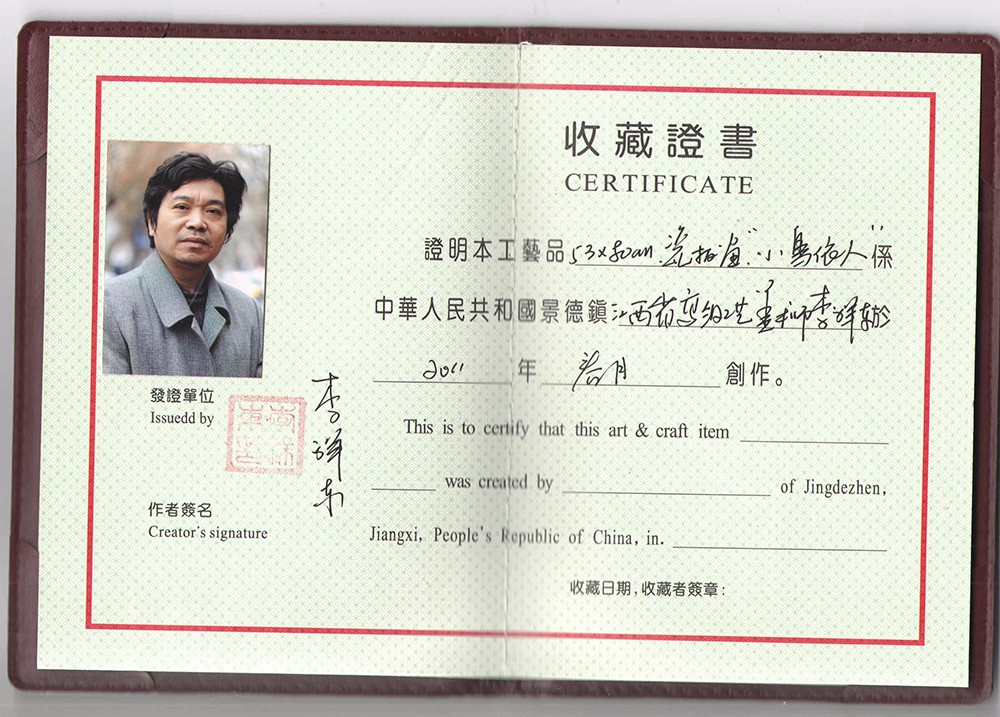 收藏證書
CERTIFICATE
證明本工藝品53×80cm瓷板畫"小鳥依人"係
中華人民共和國景德鎮江西省高級工艺美术师李祥东於
2011年 月創作。
This is to certify that this art & craft item
was created by of Jingdezhen,
Jiangxi, People's Republic of China, in.
收藏日期,收藏者簽章:
發證單位
Issuedd by
李祥东
作者簽名
Creator's signature